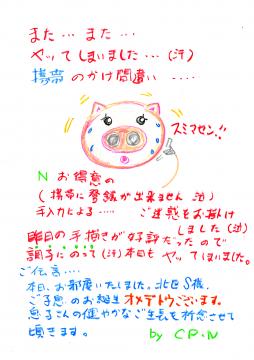 また… また…
ヤッて しまいました…(汗)
携帯 のかけ間違い ‥‥
スミマセン!!
N お得意の
(携帯に登録が出来ません 泣)
手入力による‥‥ ご迷惑をお掛け
しました(泣)
昨日の手描きが好評だったので
調子にのって(汗)本日も ヤッてしまいました。
ご伝言‥‥
本日、お邪魔いたしました。北区S様、
ご子息のお誕生オメデトウございます。
息子さんの健やかなご生長を祈念させて
頂きます。 by C.P.N